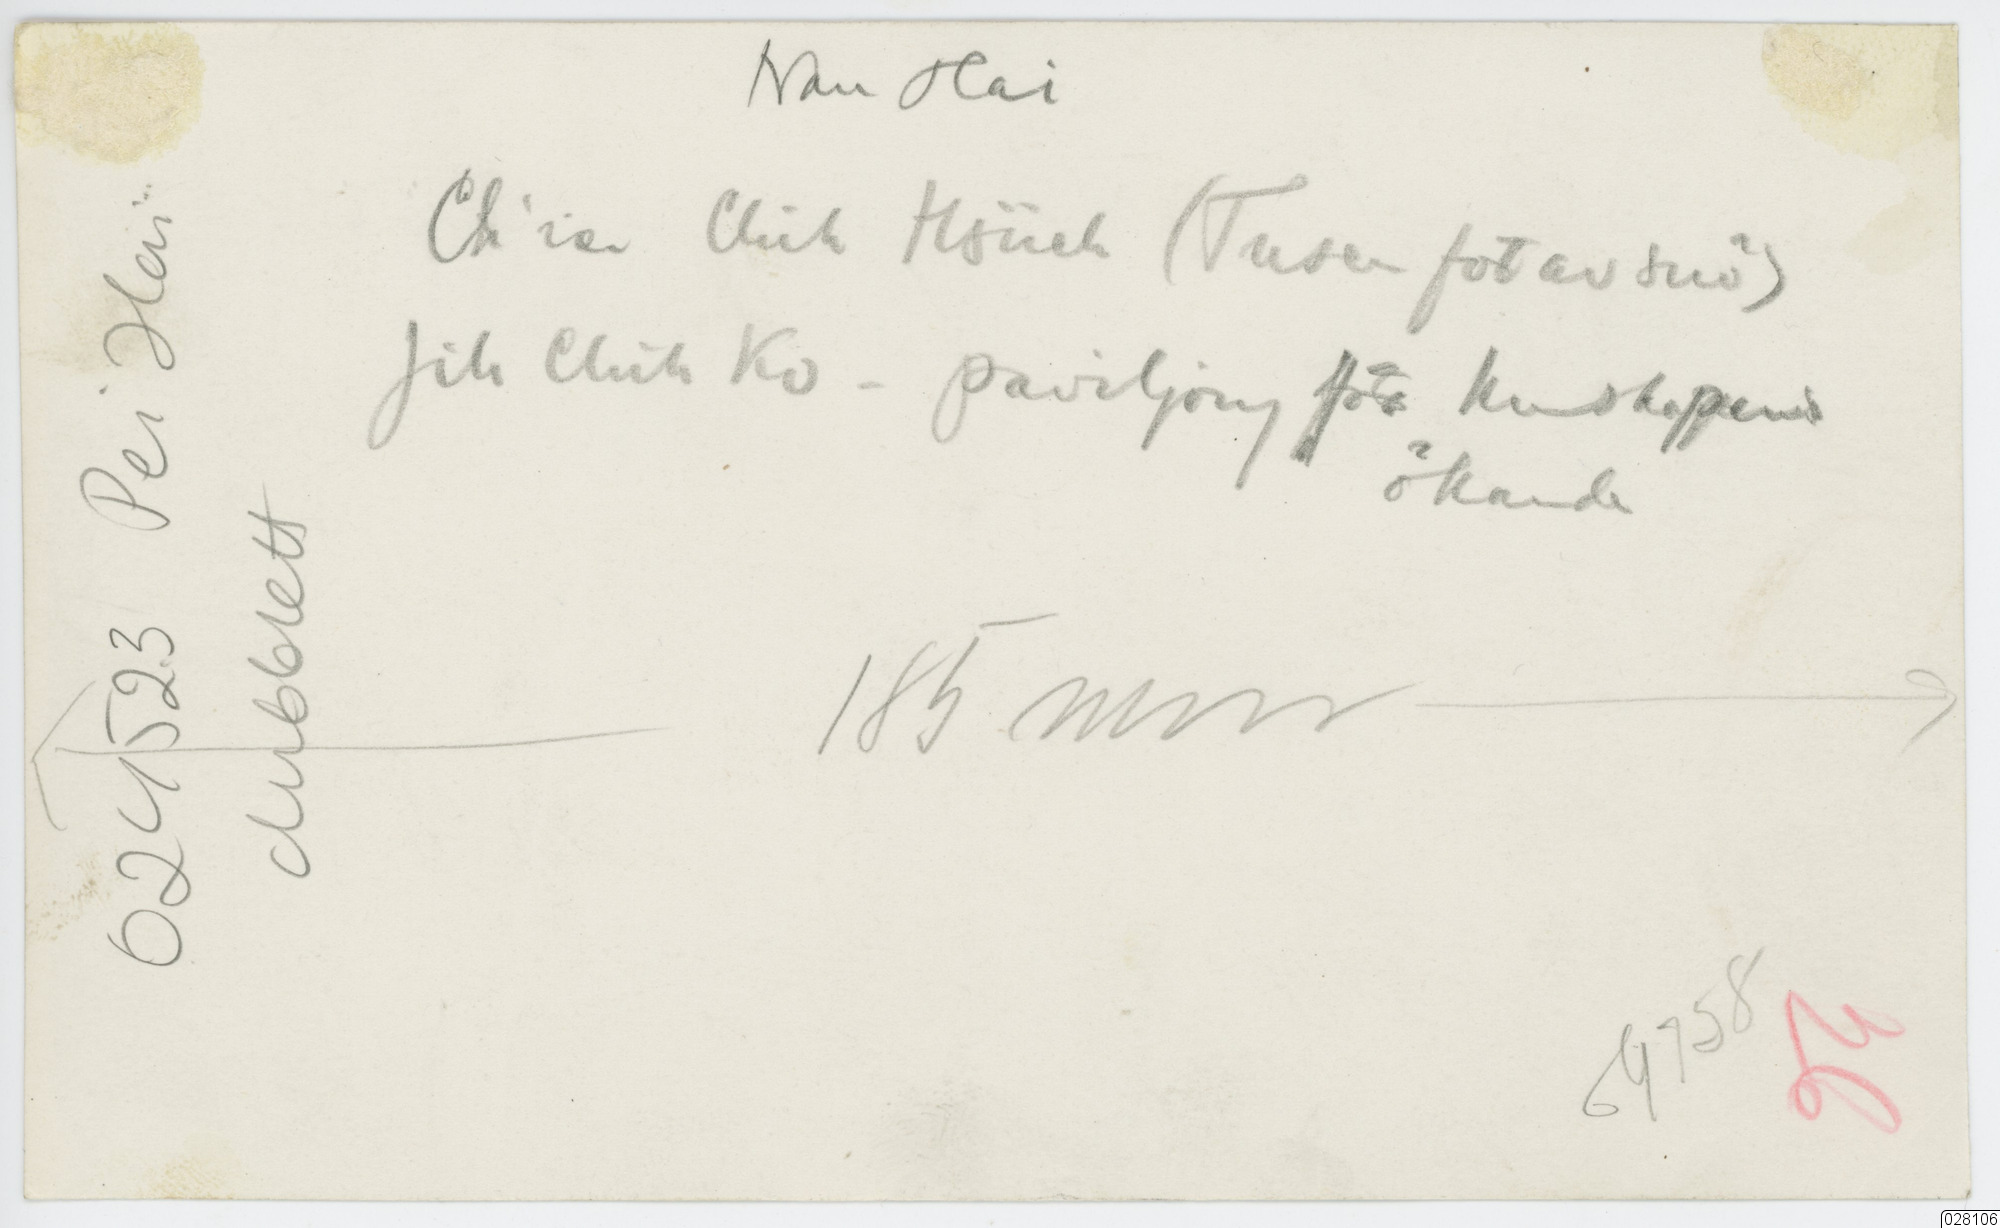 Nan Hai
Ch'ien Chih Hsüeh (Tusen fot av snö)
Jih Chih Ko - paviljong för kunskapens
ökande
185 mm
024523 Pei Hai
dubblett
64758
028106